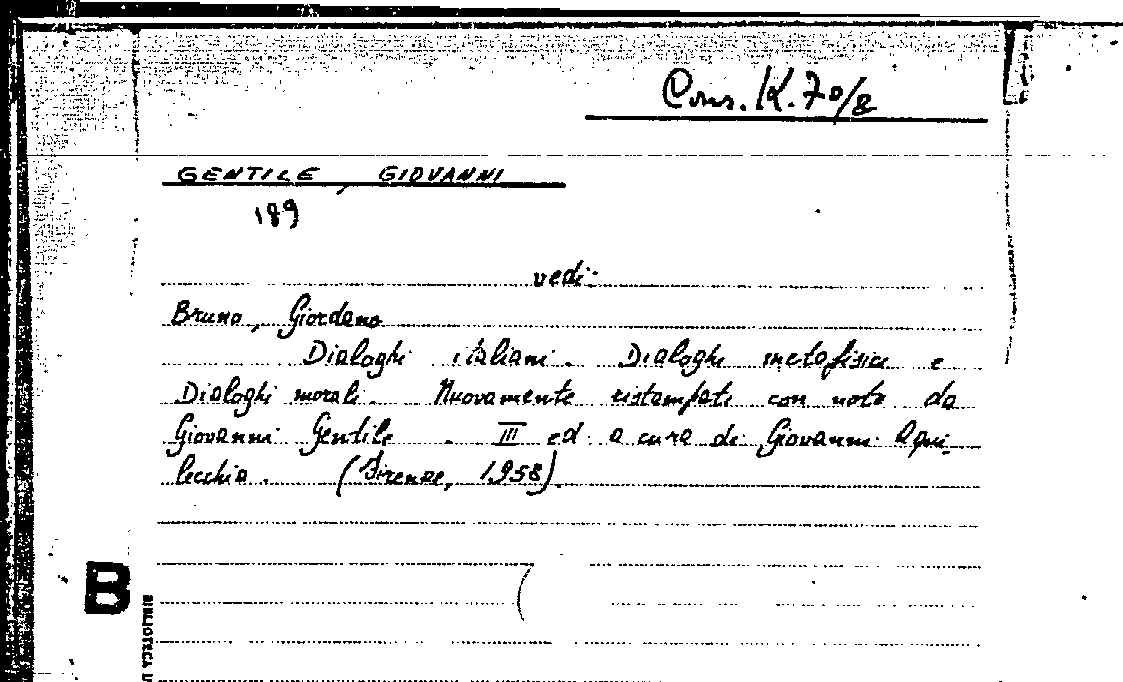 Cons. K. 70/8
GENTILE, GIOVANNI
189
vedi:
Bruno, Giordano
Dialoghi italiani. Dialoghi metafisici e
Dialoghi morali. Nuovamente ristampati con note da
Giovanni Gentile. III ed. a cura di Giovanni Aqui-
lecchia. (Firenze, 1958).
B
BIBLIOTECA